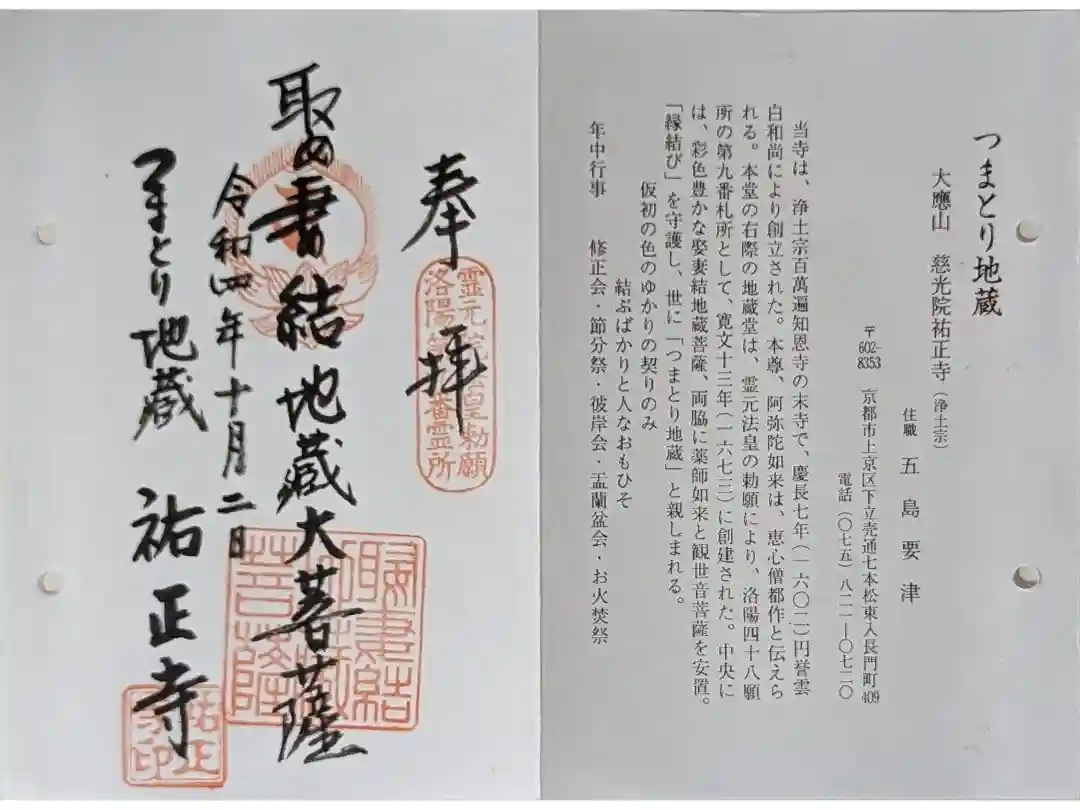 つまとり地蔵
大應山 慈光院祐正寺(浄土宗)
住職 五島要津
〒602-8353 京都市上京区下立売通七本松東入長門町409
電話(〇七五)八一一―〇七二〇
当寺は、浄土宗百萬遍知恩寺の末寺で、慶長七年(一六〇二)円誉雲
白和尚により創立された。本尊、阿弥陀如来は、恵心僧都作と伝えら
れる。本堂の右際の地蔵堂は、霊元法皇の勅願により、洛陽四十八願
所の第九番札所として、寛文十三年(一六七三)に創建された。中央に
は、彩色豊かな娶妻結地蔵菩薩、両脇に薬師如来と観世音菩薩を安置。
「縁結び」を守護し、世に「つまとり地蔵」と親しまれる。
仮初の色のゆかりの契りのみ
結ぶばかりと人なおもひそ
年中行事 修正会・節分祭・彼岸会・盂蘭盆会、お火焚祭
奉拝
霊元院法皇勅願
洛陽第九番霊所
娶妻結地蔵大菩薩
娶妻結
地蔵
菩薩
令和四年十月二日
つまとり地蔵 祐正寺
祐正
寺印